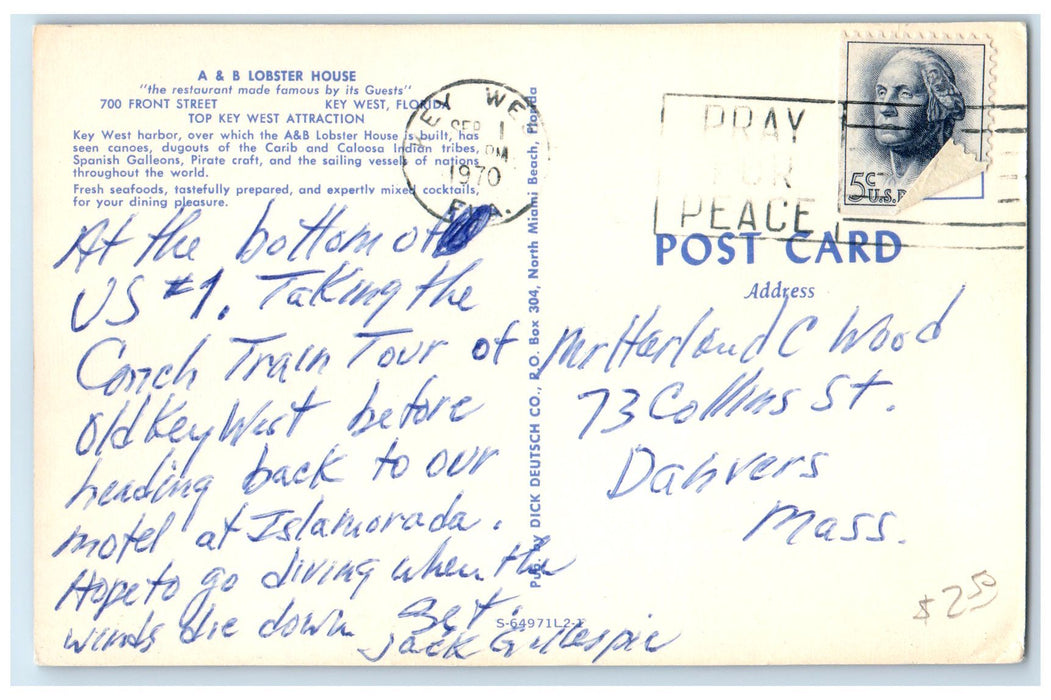 A & B LOBSTER HOUSE
"the restaurant made famous by its Guests"
700 FRONT STREET KEY WEST, FLORIDA
TOP KEY WEST ATTRACTION
Key West harbor, over which the A&B Lobster House is built, has
seen canoes, dugouts of the Carib and Caloosa Indian tribes,
Spanish Galleons, Pirate craft, and the sailing vessels of nations
throughout the world.
Fresh seafoods, tastefully prepared, and expertly mixed cocktails,
for your dining pleasure.
At the bottom of
US #1. Taking the
Conch Train Tour of
Old Key West before
heading back to our
motel at Islamorada.
Hope to go diving when the
winds die down
Jack Gillespie
S-64971L2-1
Pub. by DICK DEUTSCH CO., P.O. Box 304, North Miami Beach, Florida
KEY WE
SEP 1
PM
1970
FLA.
PRAY
FOR
PEACE
5c
U.S.
POST CARD
Address
Mr Harland C Wood
73 Collins St.
Danvers
Mass.
$2.50